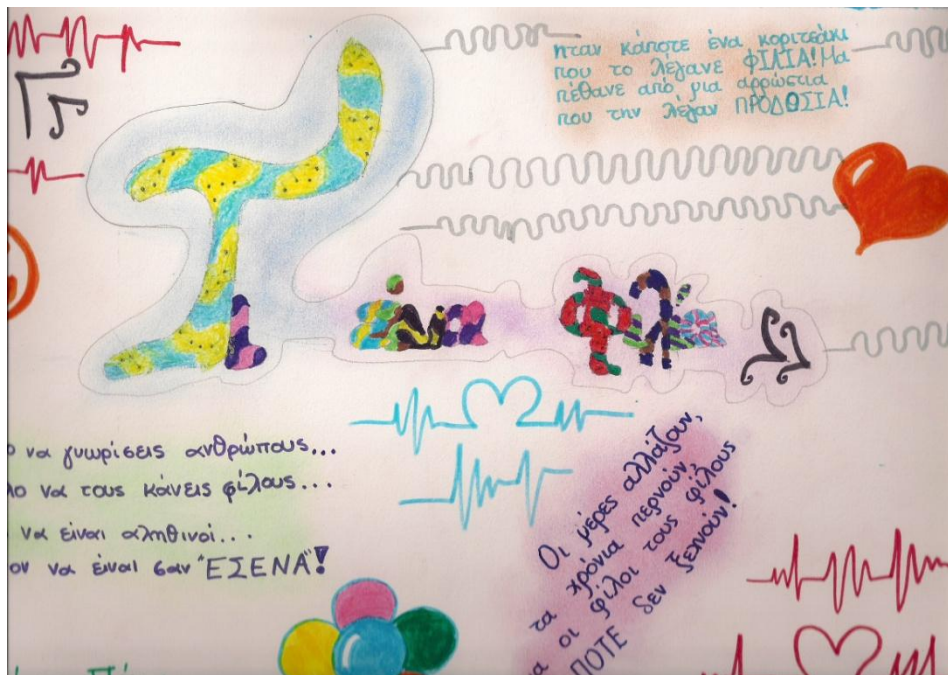 ήταν κάποτε ένα κοριτσάκι
που το λέγανε ΦΙΛΙΑ! Μα
πέθανε από μια αρρώστια
που την λέγαν ΠΡΟΔΟΣΙΑ!
Τι είναι φιλία
να γνωρίσεις ανθρώπους...
να τους κάνεις φίλους...
να είναι αληθινοί...
να είναι σαν "ΕΣΕΝΑ"!
Οι μέρες αλλάζουν,
τα χρόνια περνούν
οι φίλοι τους φίλους
ΠΟΤΕ δεν ξεχνούν!